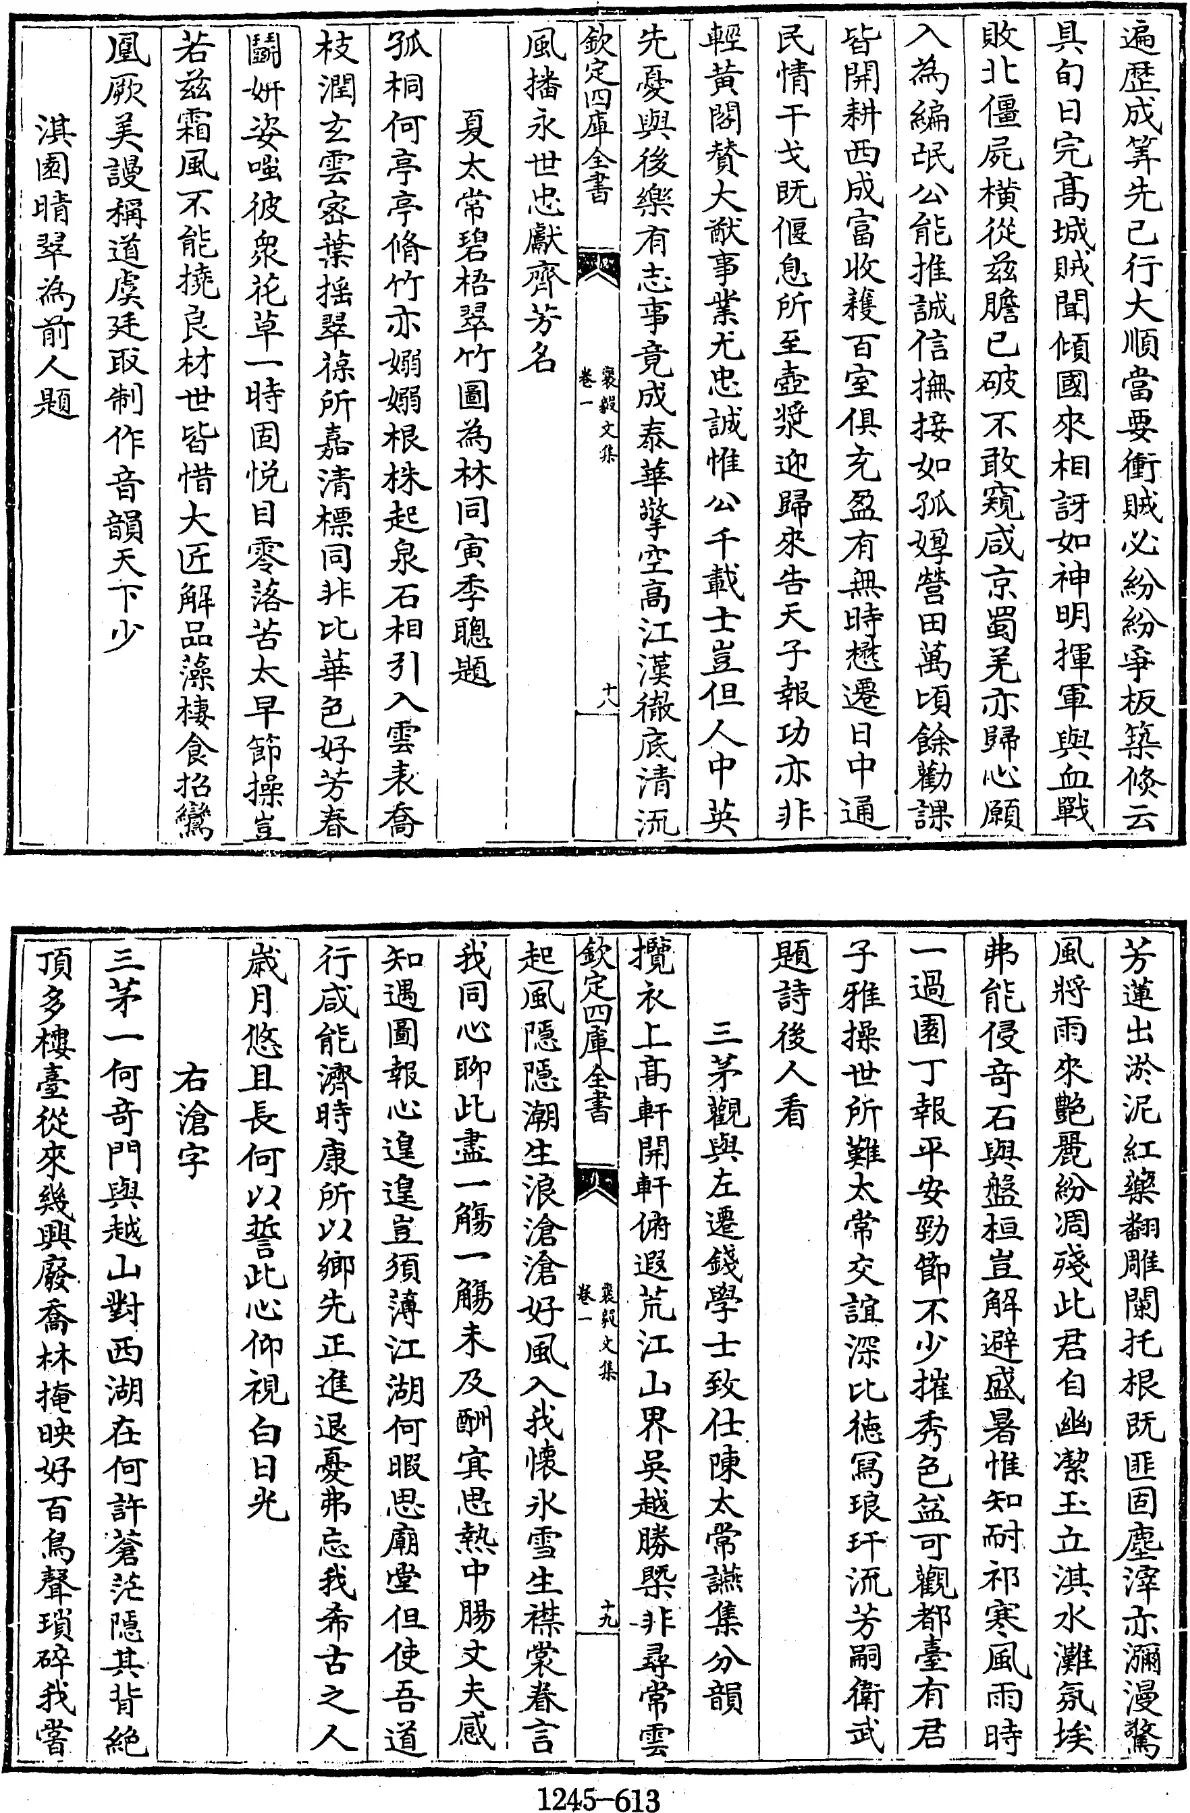 遍歴成筭先已行大順當要衝賊必紛紛爭板築倐云
具旬日完髙城賊聞傾國來相訝如神明揮軍與血戰
敗北僵屍橫從兹膽已破不敢窺咸京蜀羌亦歸心願
入為編氓公能推誠信撫接如孤嫜營田萬頃餘勸課
皆開耕西成富收穫百室俱充盈有無時懋遷日中通
民情干戈既偃息所至壺漿迎歸來告天子報功亦非
輕黄閣賛大猷事業尤忠誠惟公千載士豈但人中英
先憂與後樂有志事竟成泰華擎空高江漢徹底清流
欽定四庫全書
襄毅文集
卷一
十八
風播永世忠獻齊芳名
夏太常碧梧翠竹圖為林同寅季聰題
孤桐何亭亭脩竹亦嫋嫋根株起泉石相引入雲表喬
枝潤玄雲宻葉揺翠葆所嘉清標同非比華色好芳春
鬭妍姿嗤彼衆花草一時固悦目零落苦太早節操豈
若兹霜風不能撓良材世皆惜大匠解品藻棲食招鸞
凰厥美謾稱道虞廷取制作音韻天下少
淇園晴翠為前人題
芳蓮出淤泥紅藥翻雕闌托根既匪固塵滓亦瀰漫驚
風將雨來艷麗紛凋殘此君自幽潔玉立淇水灘氛埃
弗能侵奇石與盤桓豈解避盛暑惟知耐祁寒風雨時
一過園丁報平安勁節不少摧秀色盆可觀都臺有君
子雅操世所難太常交誼深比徳冩琅玕流芳嗣衛武
題詩後人看
三茅觀與左遷錢學士致仕陳太常讌集分韻
攬衣上髙軒開軒俯遐荒江山界吳越勝槩非尋常雲
欽定四庫全書
襄毅文集
卷一
十九
起風隱隱潮生浪滄滄好風入我懷氷雪生襟裳眷言
我同心聊此盡一觴一觴未及酬寘思熱中腸丈夫感
知遇圖報心遑遑豈須薄江湖何暇思廟堂但使吾道
行咸能濟時康所以鄉先正進退憂弗忘我希古之人
歳月悠且長何以誓此心仰視白日光
右滄字
三茅一何奇門與越山對西湖在何許蒼茫隱其背絶
頂多樓臺從來幾興廢喬林掩映好百鳥聲瑣碎我嘗
1245-613